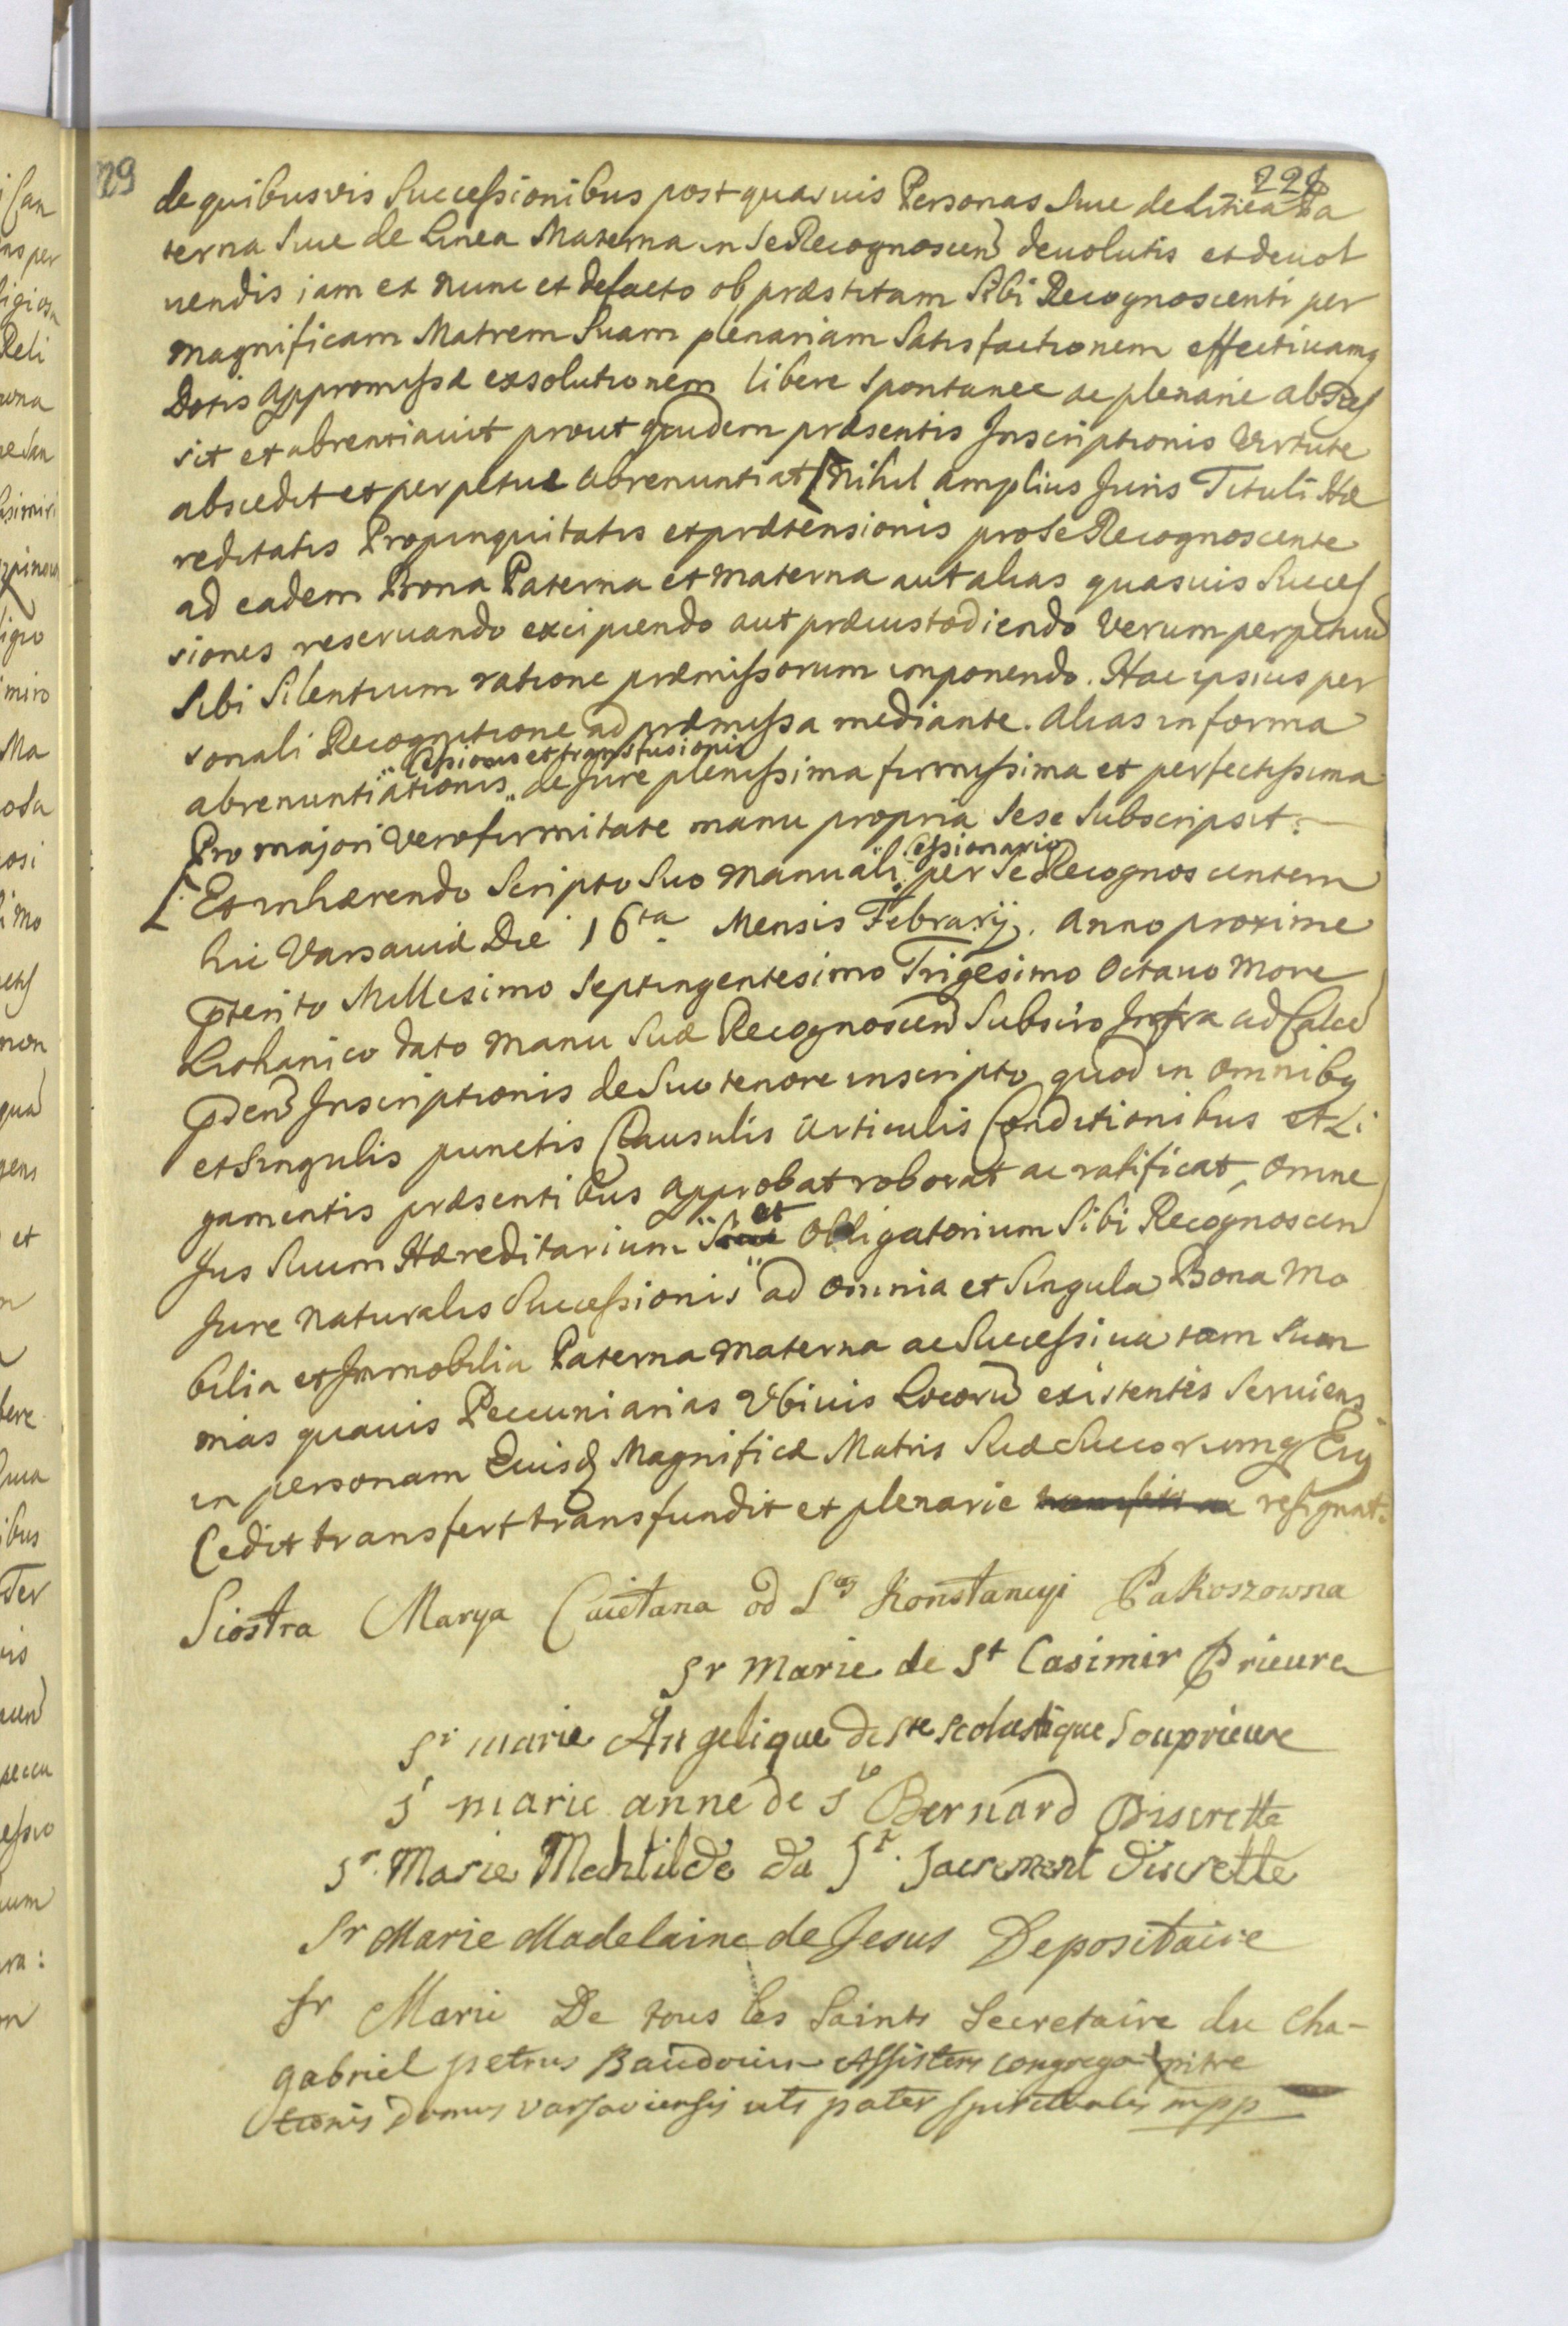 229
228
de quibusvis Successionibus post quasuis Personas Siue de Linea Pa
terna Siue de Linea Materna in Se Recognoscen deuolutis et deuol
uendis iam ex nunc et de facto ob præstitam Sibi Recognoscenti per
Magnificam Matrem Suam plenariam Satisfactionem effectiuamq
Dotis appromissæ exsolutionem libere spontanee ac plenarie abs
sit et abrentiauit prout quidem præsentis Inscriptionis Vertute
abscedit et perpetuæ abrenuntiat [Nihil amplius Juris Tituli Hæ
reditatis Propinquitatis et prætensionis pro Se Recognoscente
ad eadem Bona Paterna et Materna aut alias quasuis Succes
siones reseruando excipiendo aut præcustodiendo Verum perpetuu
Sibi Silentium ratione præmissorum imponendo. Hac ipsius per
sonali Recognitione ad præmissa mediante. Alias in forma
cessionis et transfusionis
abrenuntiationis de Jure plenissima firmissima et perfectissima
Pro majori Vero firmitate manu propria Sese Subscripsit.
cessionario
[Et inhærendo Scripto Suo Manuali per Se Recognoscentem
hic Varsauiæ Die 16ta Mensis Febrarij. Anno proxime
pterito Millesimo Septingentesimo Trigesimo Octauo More
Lithanico dato manu Suæ Recognoscen Subscro Infra ad Calce
pden Inscriptionis de Suo tenore inscripto quod in omnibq
et Singulis punctis Clausulis Articulis Conditionibus et Li
gamentis præsentibus approbat roborat ac ratificat, omne
et
Jus Suum Hæreditarium Siue Obligatorium Sibi Recognoscen
Jure Naturalis Successionis ad omnia et Singula Bona Mo
bilia et Immobilia Paterna Materna ac Successiua tam Sum
mas quauis Peccuniarias Vbiuis Locoru existentes Seruiens
in personam Euisq Magnificæ Matris Suæ Succorumq Eiq
Cedit transfert transfundit et plenarie resignat.
Siostra Marya Caietana od S Konstancyi Pakoszowna
Sr Marie de St Casimir Prieure
Sr marie Angelique de Ste Scolastique Souprieure
Sr marie anne de St Bernard Discrette
Sr Marie Mechtilde du St. Sacrement discrette
Sr Marie Madelaine de Jesus Depositaire
Sr Marie De tous les Saints Secretaire du Cha-
pitre
gabriel petrus Baudouin Assistens congrega
tionis domus varsaviensis uti pater spiritualis mpp